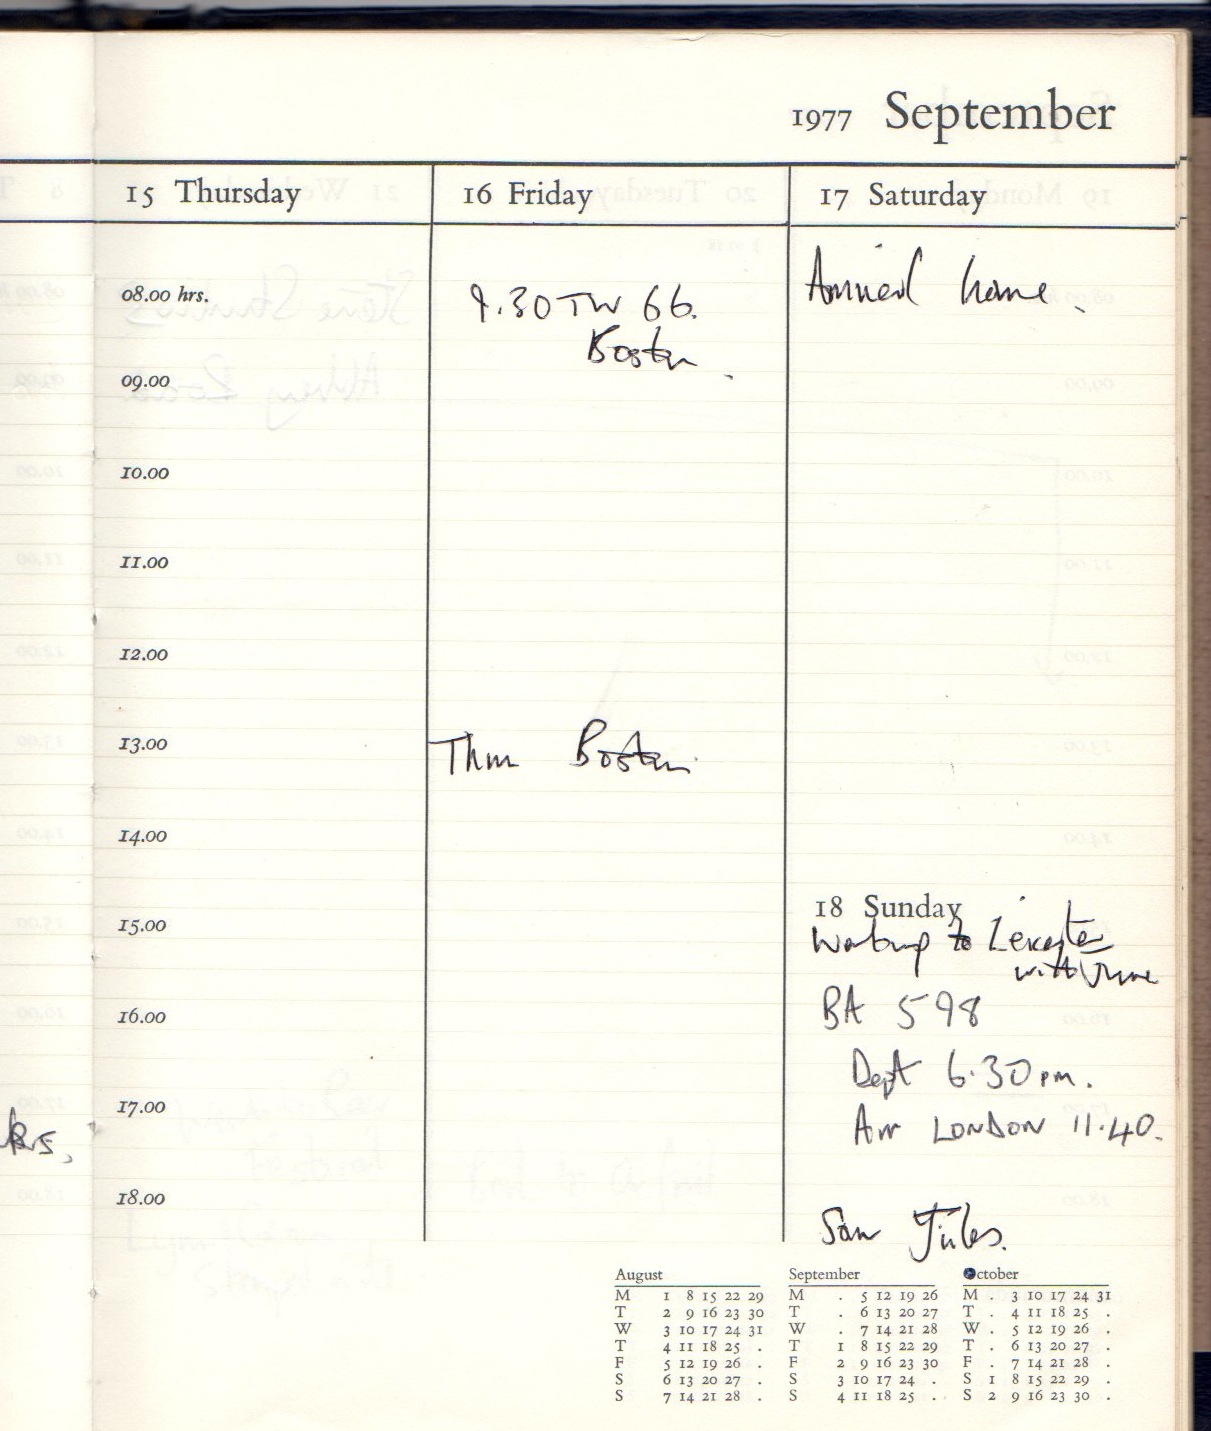 1977 September
15 Thursday
08.00 hrs.
09.00
10.00
11.00
12.00
13.00
14.00
15.00
16.00
17.00
18.00
16 Friday
9.30 TW 66.
Boston
Boston
17 Saturday
Arrived home
18 Sunday
to Leicester
with June
BA 598
Dept 6.30 pm.
Arr LONDON 11.40.
Saw Jules.
August
M 1 8 15 22 29
T 2 9 16 23 30
W 3 10 17 24 31
T 4 11 18 25 .
F 5 12 19 26 .
S 6 13 20 27 .
S 7 14 21 28 .
September
M . 5 12 19 26
T . 6 13 20 27
W . 7 14 21 28
T 1 8 15 22 29
F 2 9 16 23 30
S 3 10 17 24 .
S 4 11 18 25 .
October
M . 3 10 17 24 31
T . 4 11 18 25 .
W . 5 12 19 26 .
T . 6 13 20 27 .
F . 7 14 21 28 .
S 1 8 15 22 29 .
S 2 9 16 23 30 .